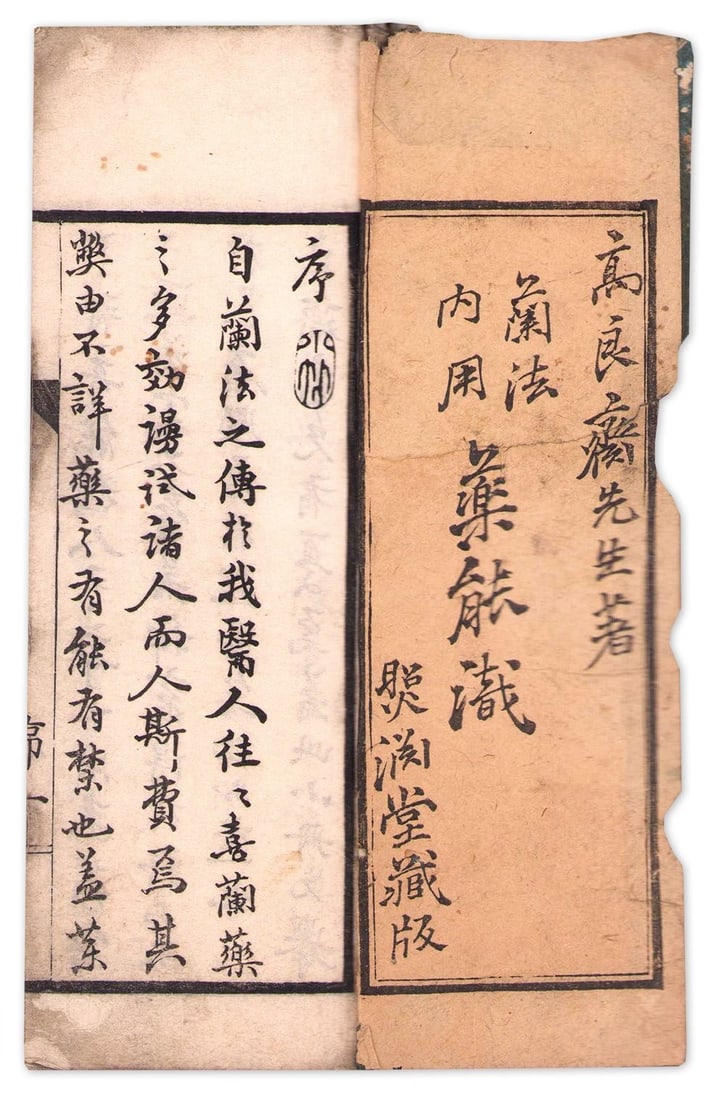 高良齋先生著
蘭法
内用
藥能識
堂藏版
序
自蘭法之傳扵我醫人往〻喜蘭藥
之多効謾試諸人而人斯費焉其
弊由不詳藥之有能有禁也盖